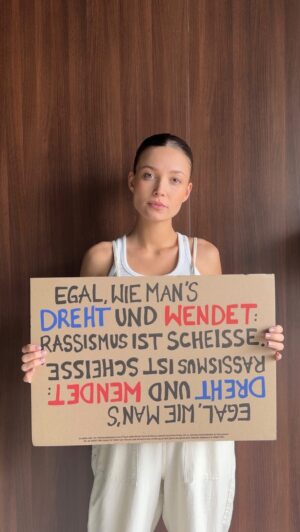 EGAL, WIE MAN'S
DREHT UND WENDET:
RASSISMUS IST SCHEISSE.
RASSISMUS IST SCHEISSE
DREHT UND WENDET:
EGAL, WIE MAN'S